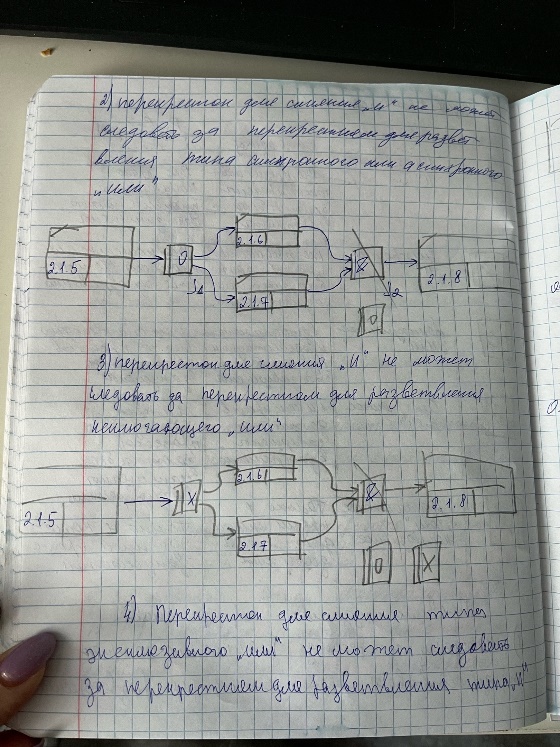 2) перекресток для слияния „и" не может
следовать за перекрестком для развет
вления типа синхронного или асинхронного
„или"
2.1.5
O
J1
2.1.6
2.1.7
&
J2
O
2.1.8
3) перекресток для слияния „И" не может
следовать за перекрестком для разветвления
исключающего „или"
2.1.5
X
2.1.6
2.1.7
&
O
X
2.1.8
4) Перекресток для слияния типа
эксклюзивного „или" не может следовать
за перекрестком для разветвления типа „И"